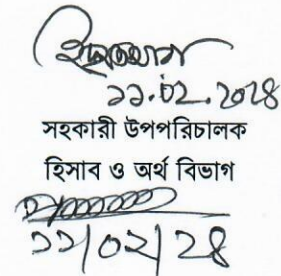 ১১.০২.২০২৪
সহকারী উপপরিচালক
হিসাব ও অর্থ বিভাগ
১১/০২/২৪